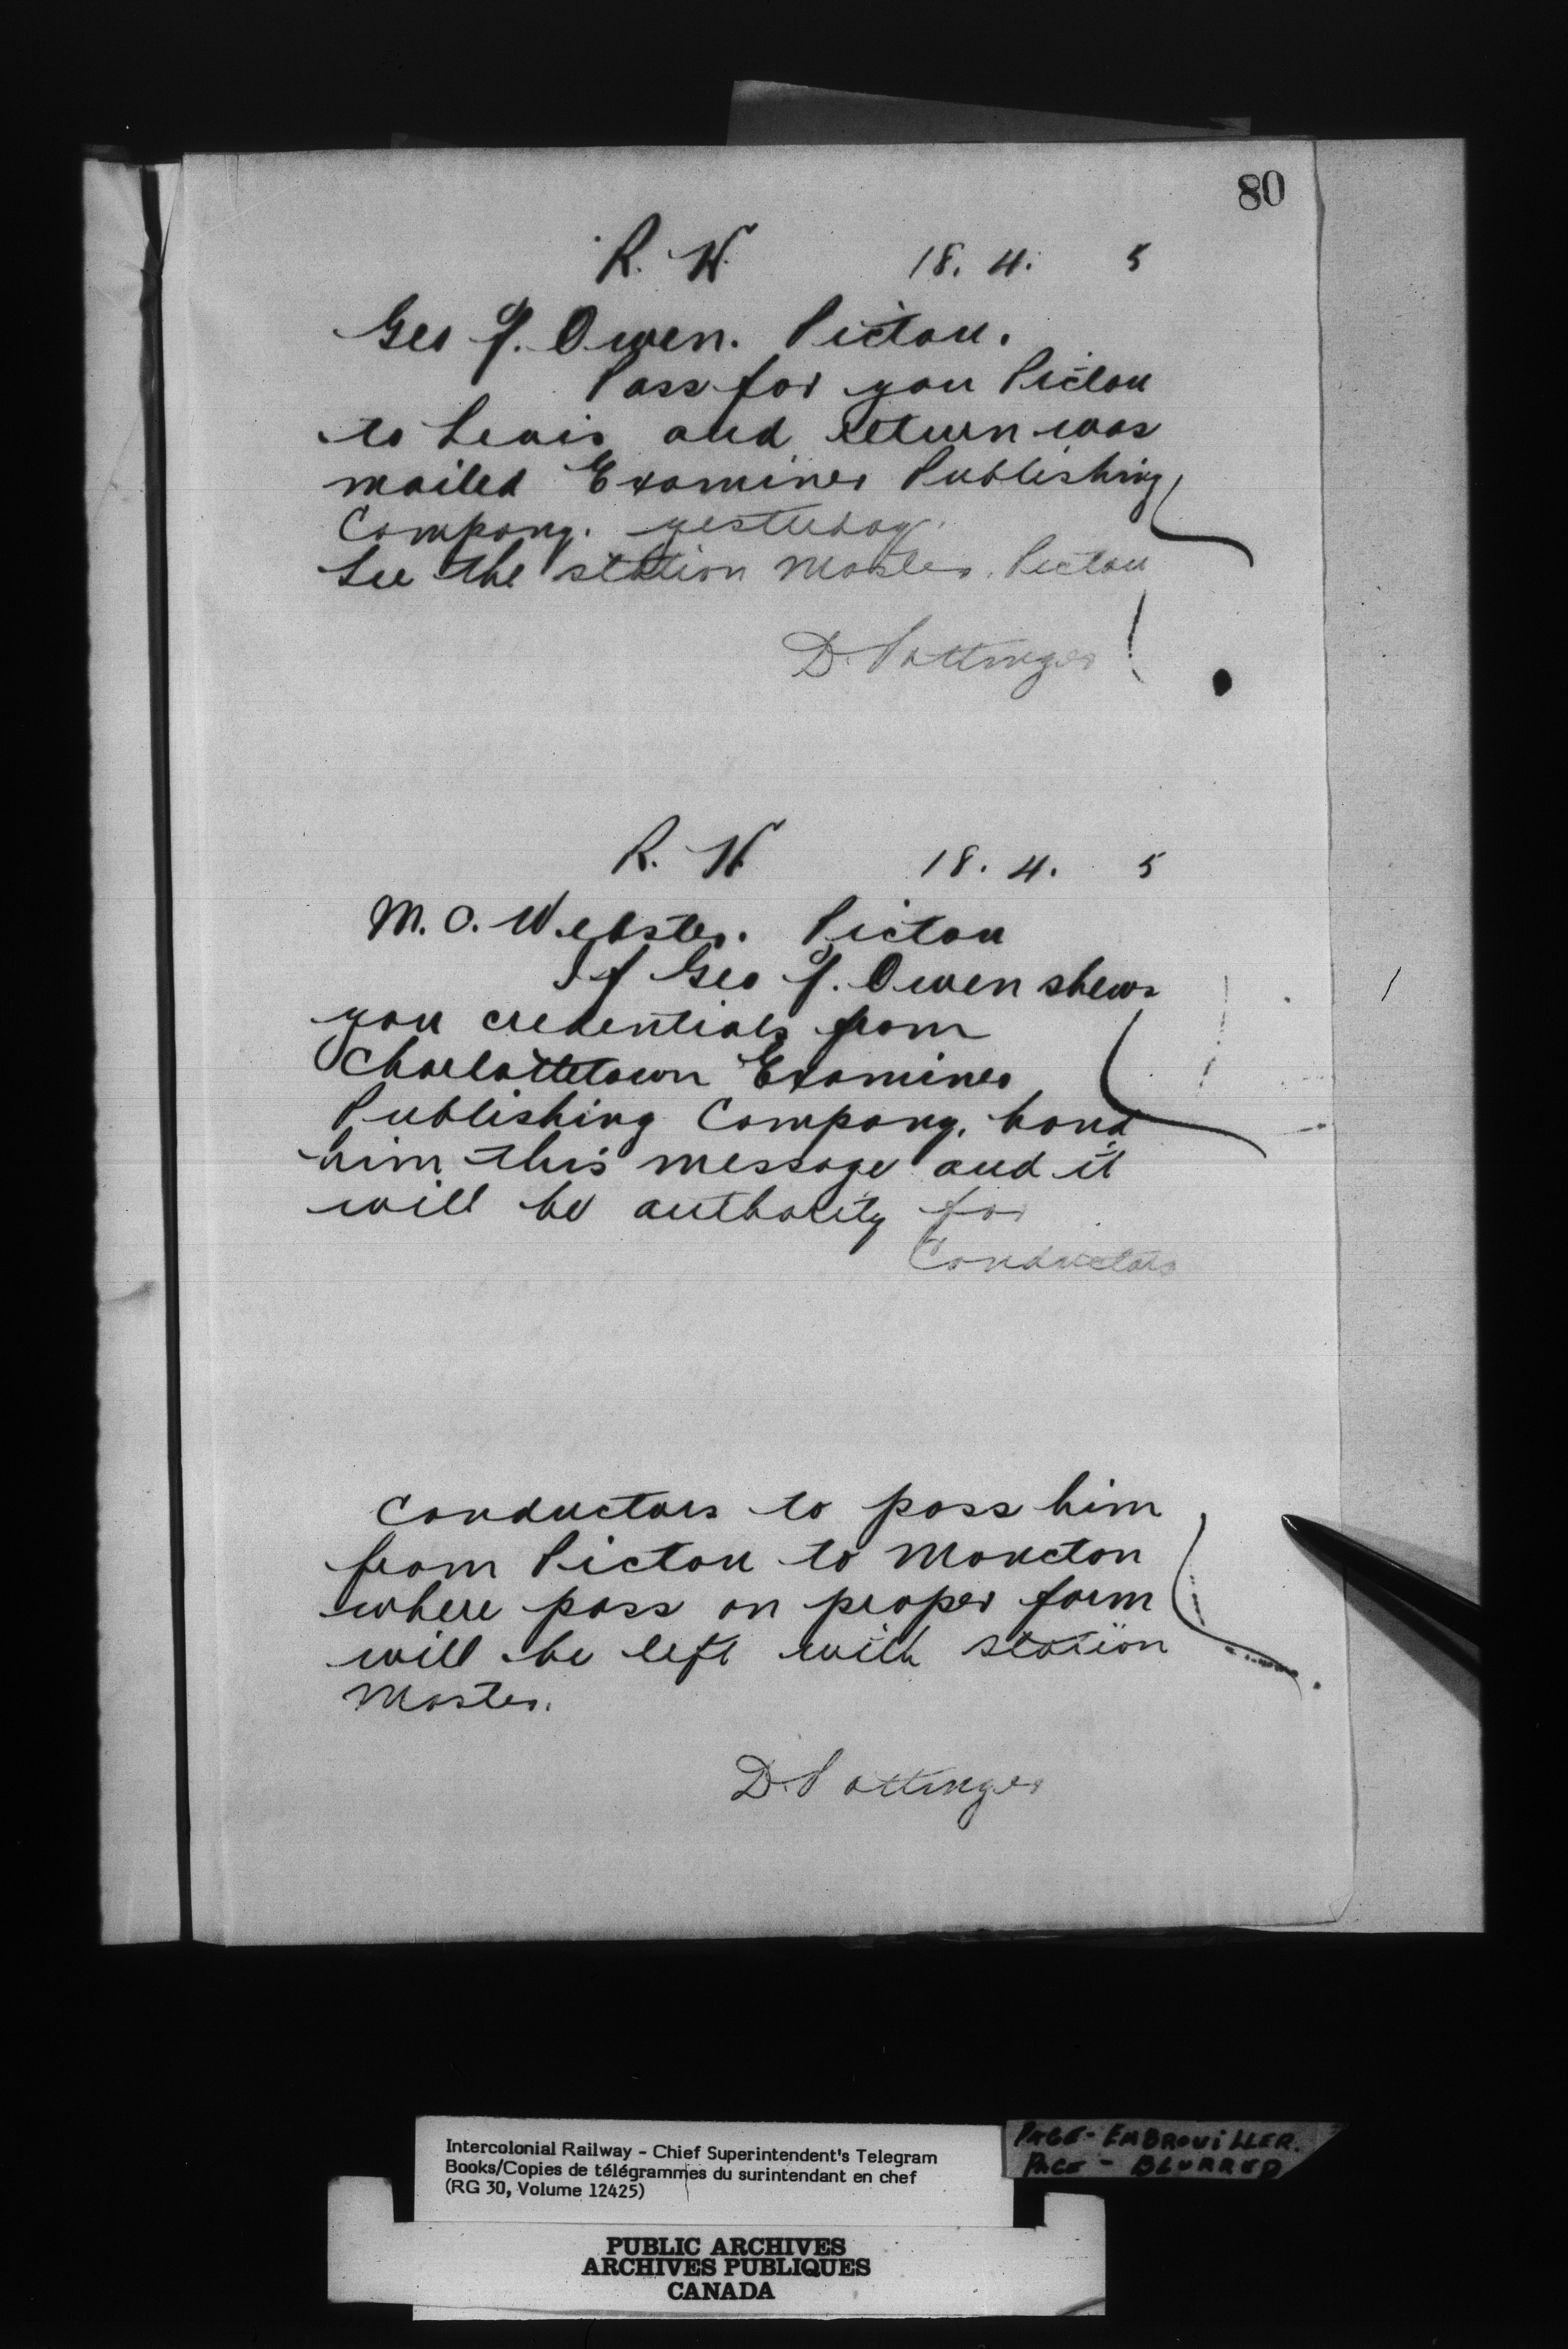 80
R. W. 18. 4. 5
Geo J. Owen. Pictou.
Pass for you Pictou
to Levis and return was
mailed Examiner Publishing
Company. yesterday.
See the station Master. Pictou
D. Pottinger
R. W. 18. 4. 5
M. O. Webster. Pictou
If Geo J. Owen shews
you credentials from
Charlottetown Examiner
Publishing Company. hand
him this message and it
will be authority for
Conductors
Conductors to pass him
from Pictou to Moncton
where pass on proper form
will be left with station
Master.
D. Pottinger
PAGE - EMBROUILLER.
PAGE - BLURRED
Intercolonial Railway - Chief Superintendent's Telegram
Books/Copies de télégrammes du surintendant en chef
(RG 30, Volume 12425)
PUBLIC ARCHIVES
ARCHIVES PUBLIQUES
CANADA